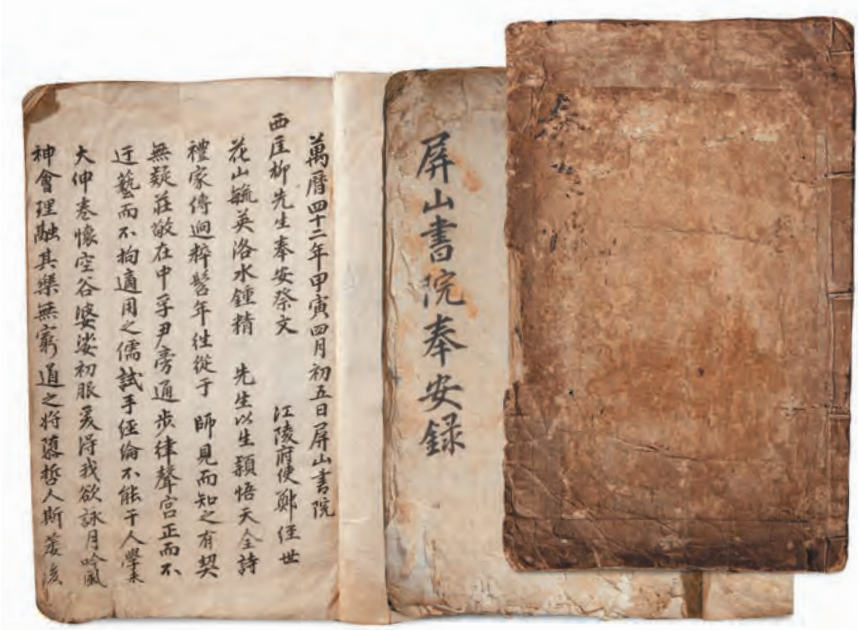 奉安錄
屏山書院奉安錄
萬曆四十二年甲寅四月初五日屏山書院
西厓柳先生奉安祭文 江陵府使鄭經世
花山毓英洛水鍾精 先生以生穎悟天全詩
禮家傳迥粹髫年徃從于 師見而知之有契
無疑莊敬在中孚尹旁通步律聲宮正而不
迂藝而不拘適用之儒試手經綸不能千人學未
大伸卷懷空谷婆娑初服爰得我欲詠月吟風
神會理融其樂無窮道之將隳哲人斯萎後